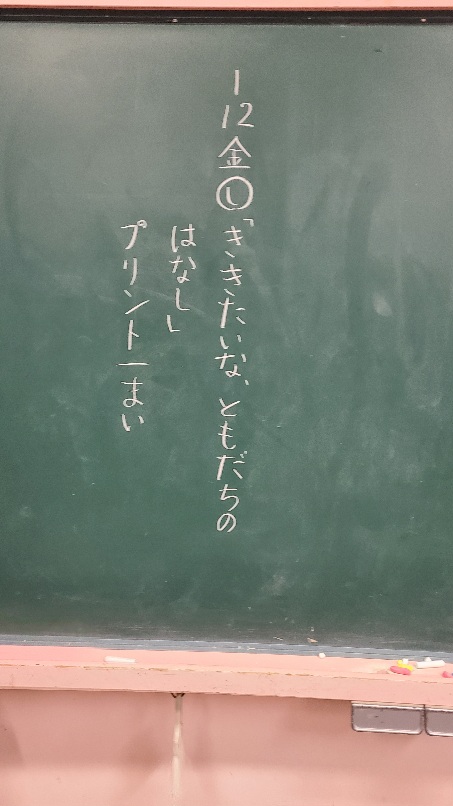 1
12
金
㋛「ききたいな、ともだちの
はなし」
プリント一まい